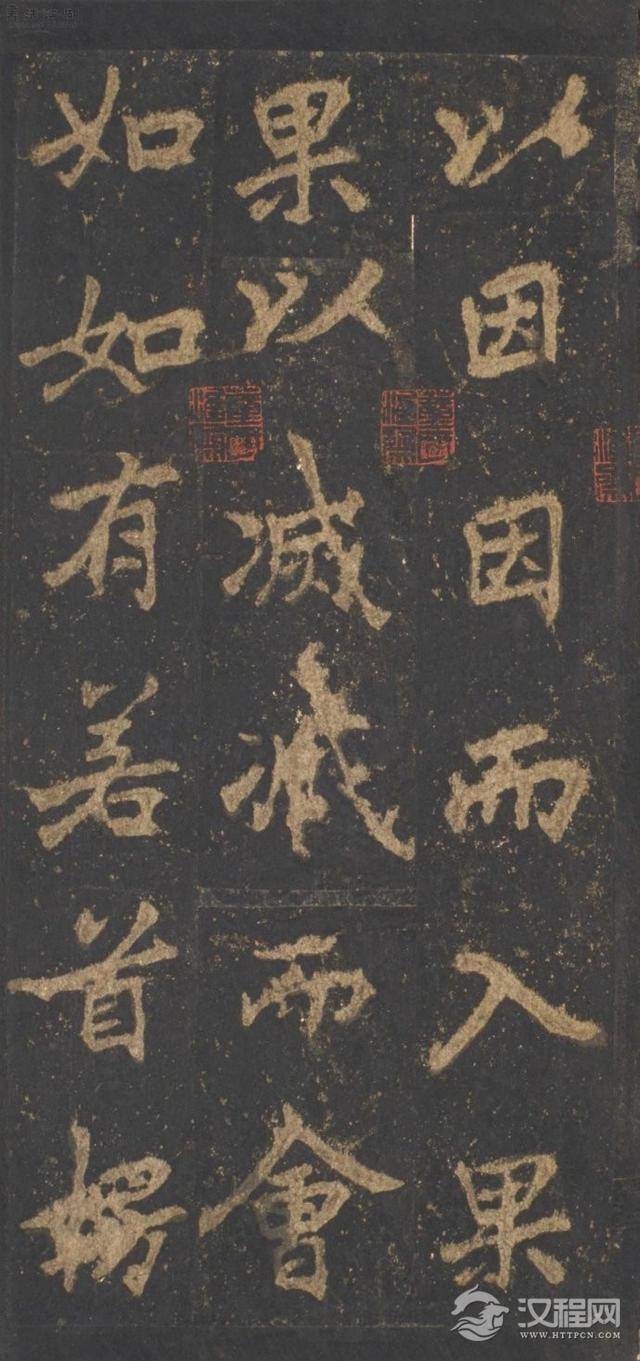 以因因而入果
果以滅滅而會
如如有若首楞
汉程网
WWW.HTTPCN.COM